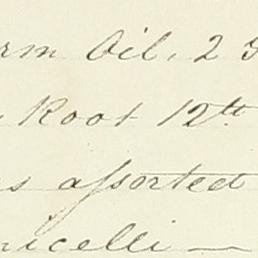 rm Oil, 2 G
Root 12th
s assorted
nicelli —